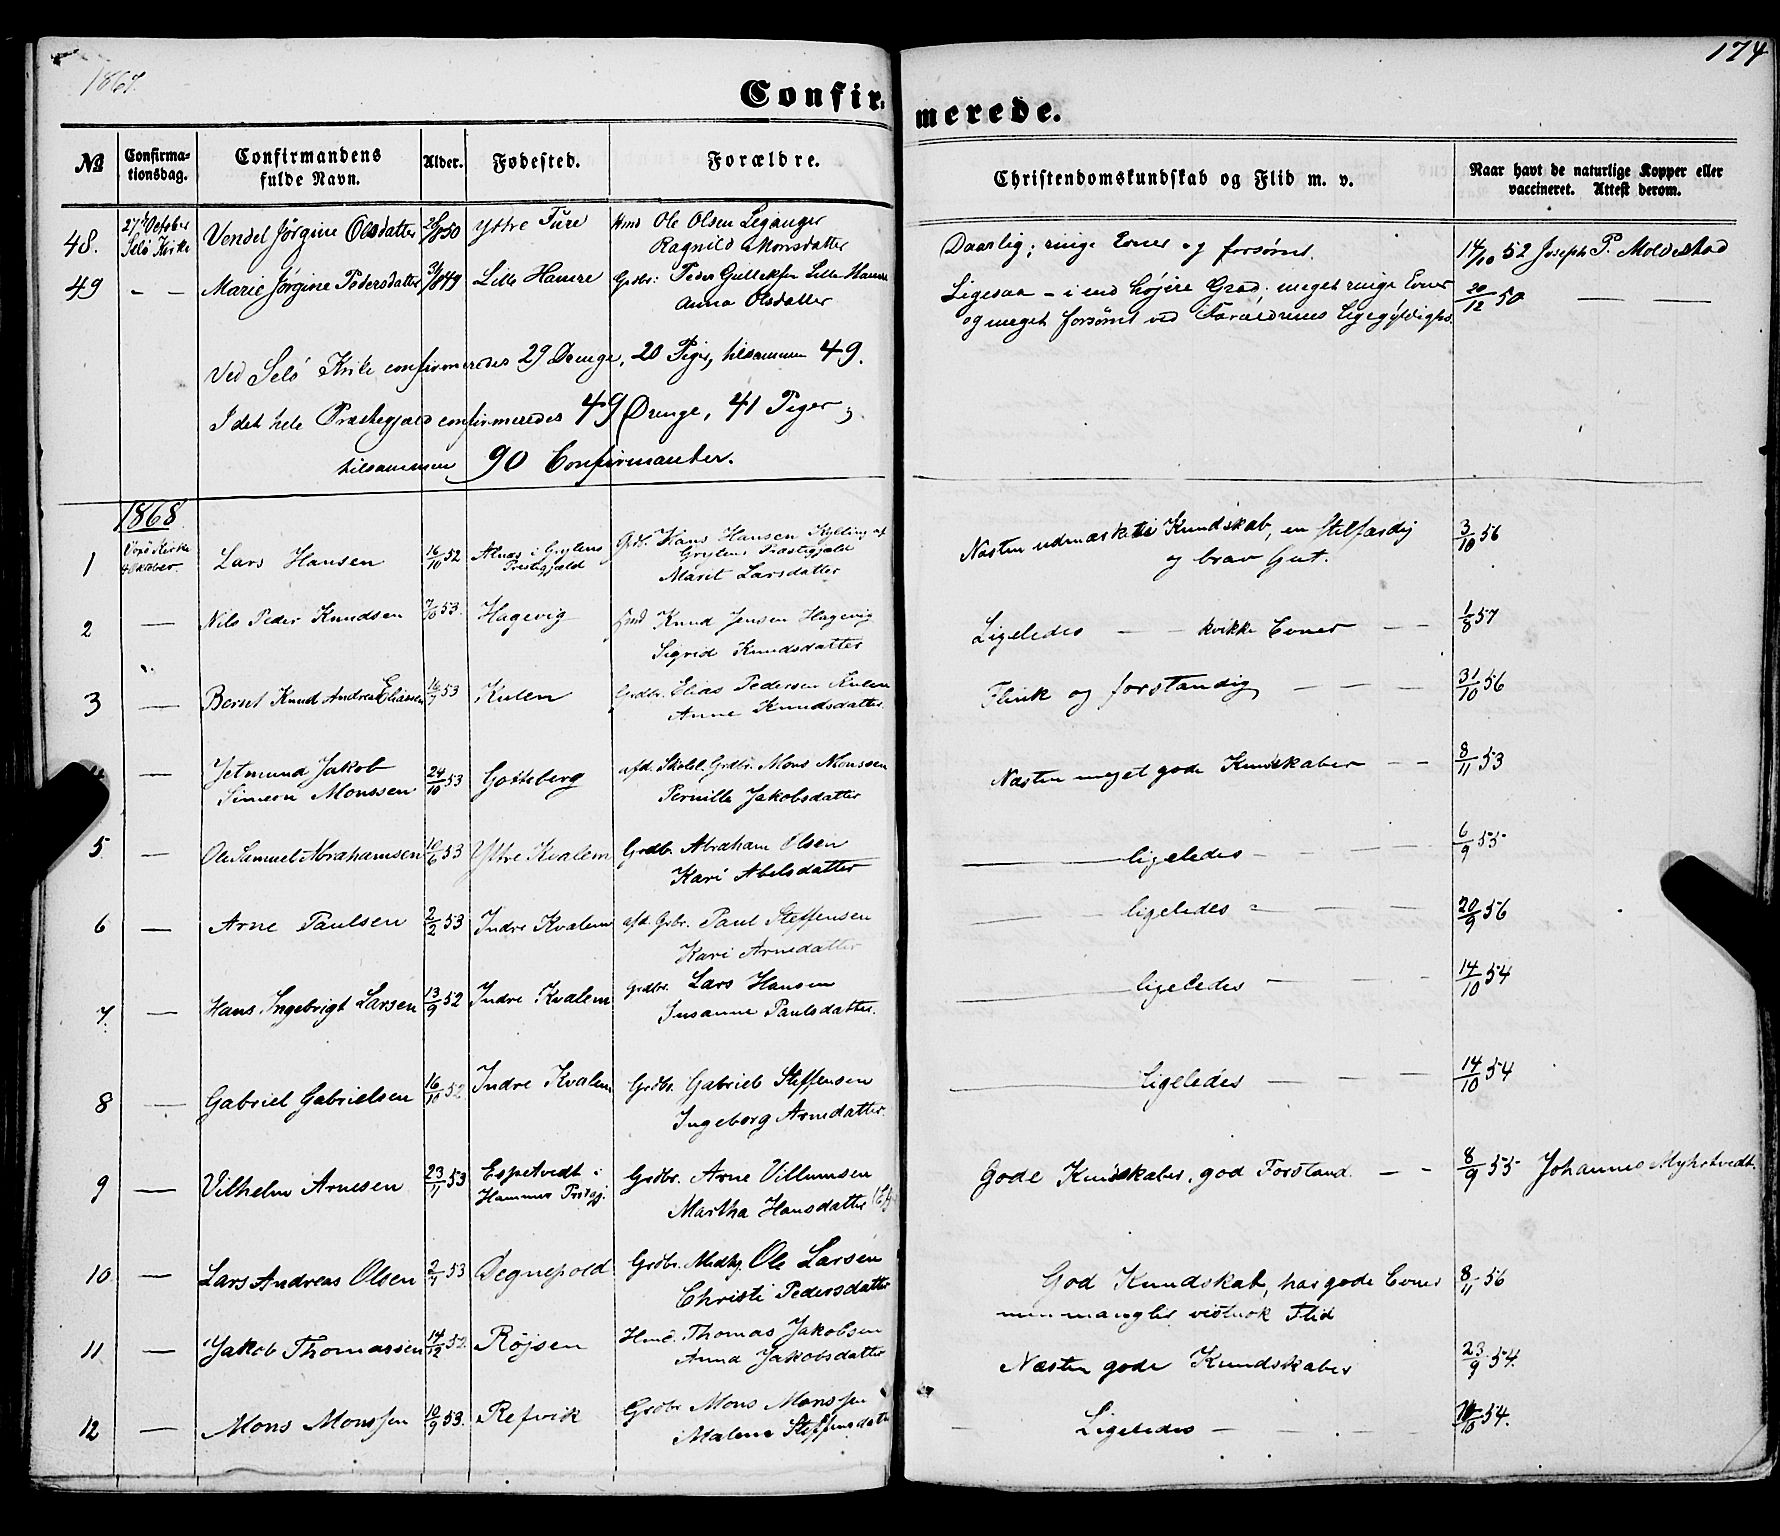 1867.
174
Confir=
merede.
№
Confirma-
tionsdag.
Confirmandens
fulde Navn.
Alder.
Fødested.
Forældre.
Christendomskundskab og Flid m. v.
Naar havt de naturlige Kopper eller
vaccineret. Attest derom.
48. 27de October Selø Kirke Vendel Jørgine Olsdatter 50 Ytre Fure Hmd Ole Olsen Leganger
Ragnild Monsdatter
Daarlig; ringe Evner og forsømt. 14/10 52 Joseph P. Moldestad
49 - - Marie Jørgine Pedersdatter 49 Lille Hamre Grdbr: Peder Gulleksen Lille Hamre
Anna Olsdatter
Ligesaa - i end højere Grad: meget ringe Evner 20/12 50 — —
og meget forsømt ved Forældrenes Ligegyldighd.
Ved Selø Kirke confirmeredes 29 Drenge, 20 Piger, tilsammen 49.
I det hele Præstegjæld confirmeredes 49 Drenge, 41 Piger,
tilsammen 90 Confirmanter.
1868.
1 Kirke October Lars Hansen 16/10 52 Alnæs i Grytens
Præstegjæld
Grdb. Hans Hansen Kylling af
Grytens Præstegjæld
Marit Larsdatter
Næsten udmærkede Kundskab, en stilfærdig 3/10 56
og brav Gut.
2 — Nils Peder Knudsen 7/10 53. Hagevig Hmd Knud Jensen Hagevig
Sigrid Knudsdatter
Ligeledes — — kvikke Evner — — 1/8 57
3 — Bernt Knud Andreas Eliassen 16/7 53 Kulen Grdbr. Elias Pedersen Kulen
Anne Knudsdatter
Flink og forstandig — — — 31/10 56
4 — Jetmund Jakob
Simern Monssen 24/10 53 Gotteberg afd. Skolel. Grdbr. Mons Monssen
Pernille Jakobsdatter
Næsten meget gode Kundskaber — — 8/11 53
5 — Ole Samuel Abrahamsen 10/6 53 Yttre Kvalem Grdbr. Abraham Olsen
Kari Abelsdatter
— ligeledes — — 6/9 55
6 — Arne Paulsen 2/2 53 Indre Kvalem afd. Grbr. Paul Steffensen
Kari Arnedatter
— ligeledes — — — 20/9 56
7. — Hans Ingebrigt Larsen 13/9 52 Indre Kvalem Grdbr. Lars Hansen
Susanne Paulsdatter.
— ligeledes — — — 14/10 54
8 — Gabriel Gabrielsen 16/10 52 Indre Kvalem Grdbr. Gabriel Steffensen
Ingeborg Arnedatter.
— ligeledes — — — 14/10 54
9 — Vilhelm Arnesen 23/11 53 Espetvedt i
Hammer Prstgj. Grdbr. Arne Villumsen
Martha Hansdatter
Gode Kundskaber, god Forstand. — — 8/9 55 Johannes Myhrtvedt
10 — Lars Andreas Olsen 2/1 53 Degnepold Grdbr. Medhj. Ole Larsen
Christi Pedersdatter
God Kundskab, har gode Evner 8/11 56
men mangler vistnok Flid
11 — Jakob Thomassen 14/12 52. Røjsen Hmd. Thomas Jakobsen
Anna Jakobsdatter
Næsten gode Kundskaber 23/9 54.
12 — Mons Monssen 10/9 53. Refvik Grdbr Mons Monssen
Malene Steffensdatter
— Ligeledes — — — 54.